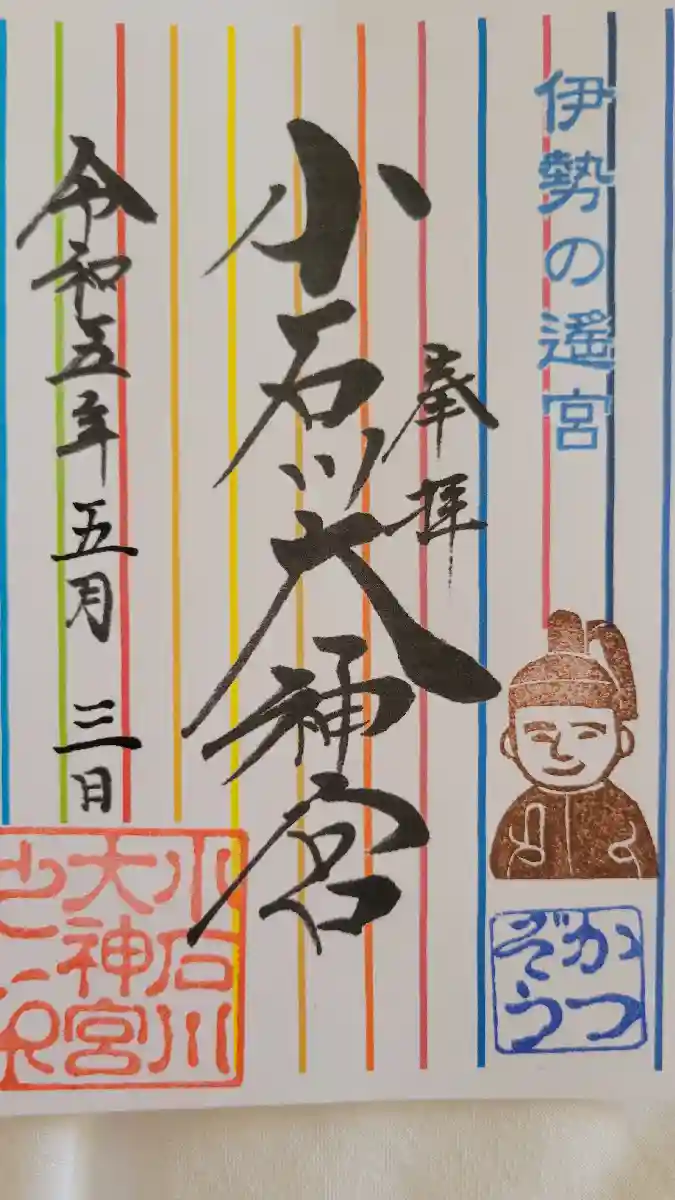 伊勢の遥宮
奉拝
小石川大神宮
令和五年五月三日
かつ
ぞう
小石川
大神宮